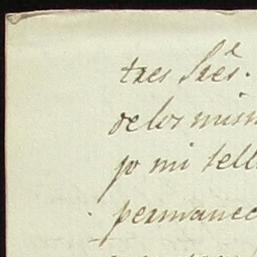 tres Sres.
de los mism
jo mi sell
permanec